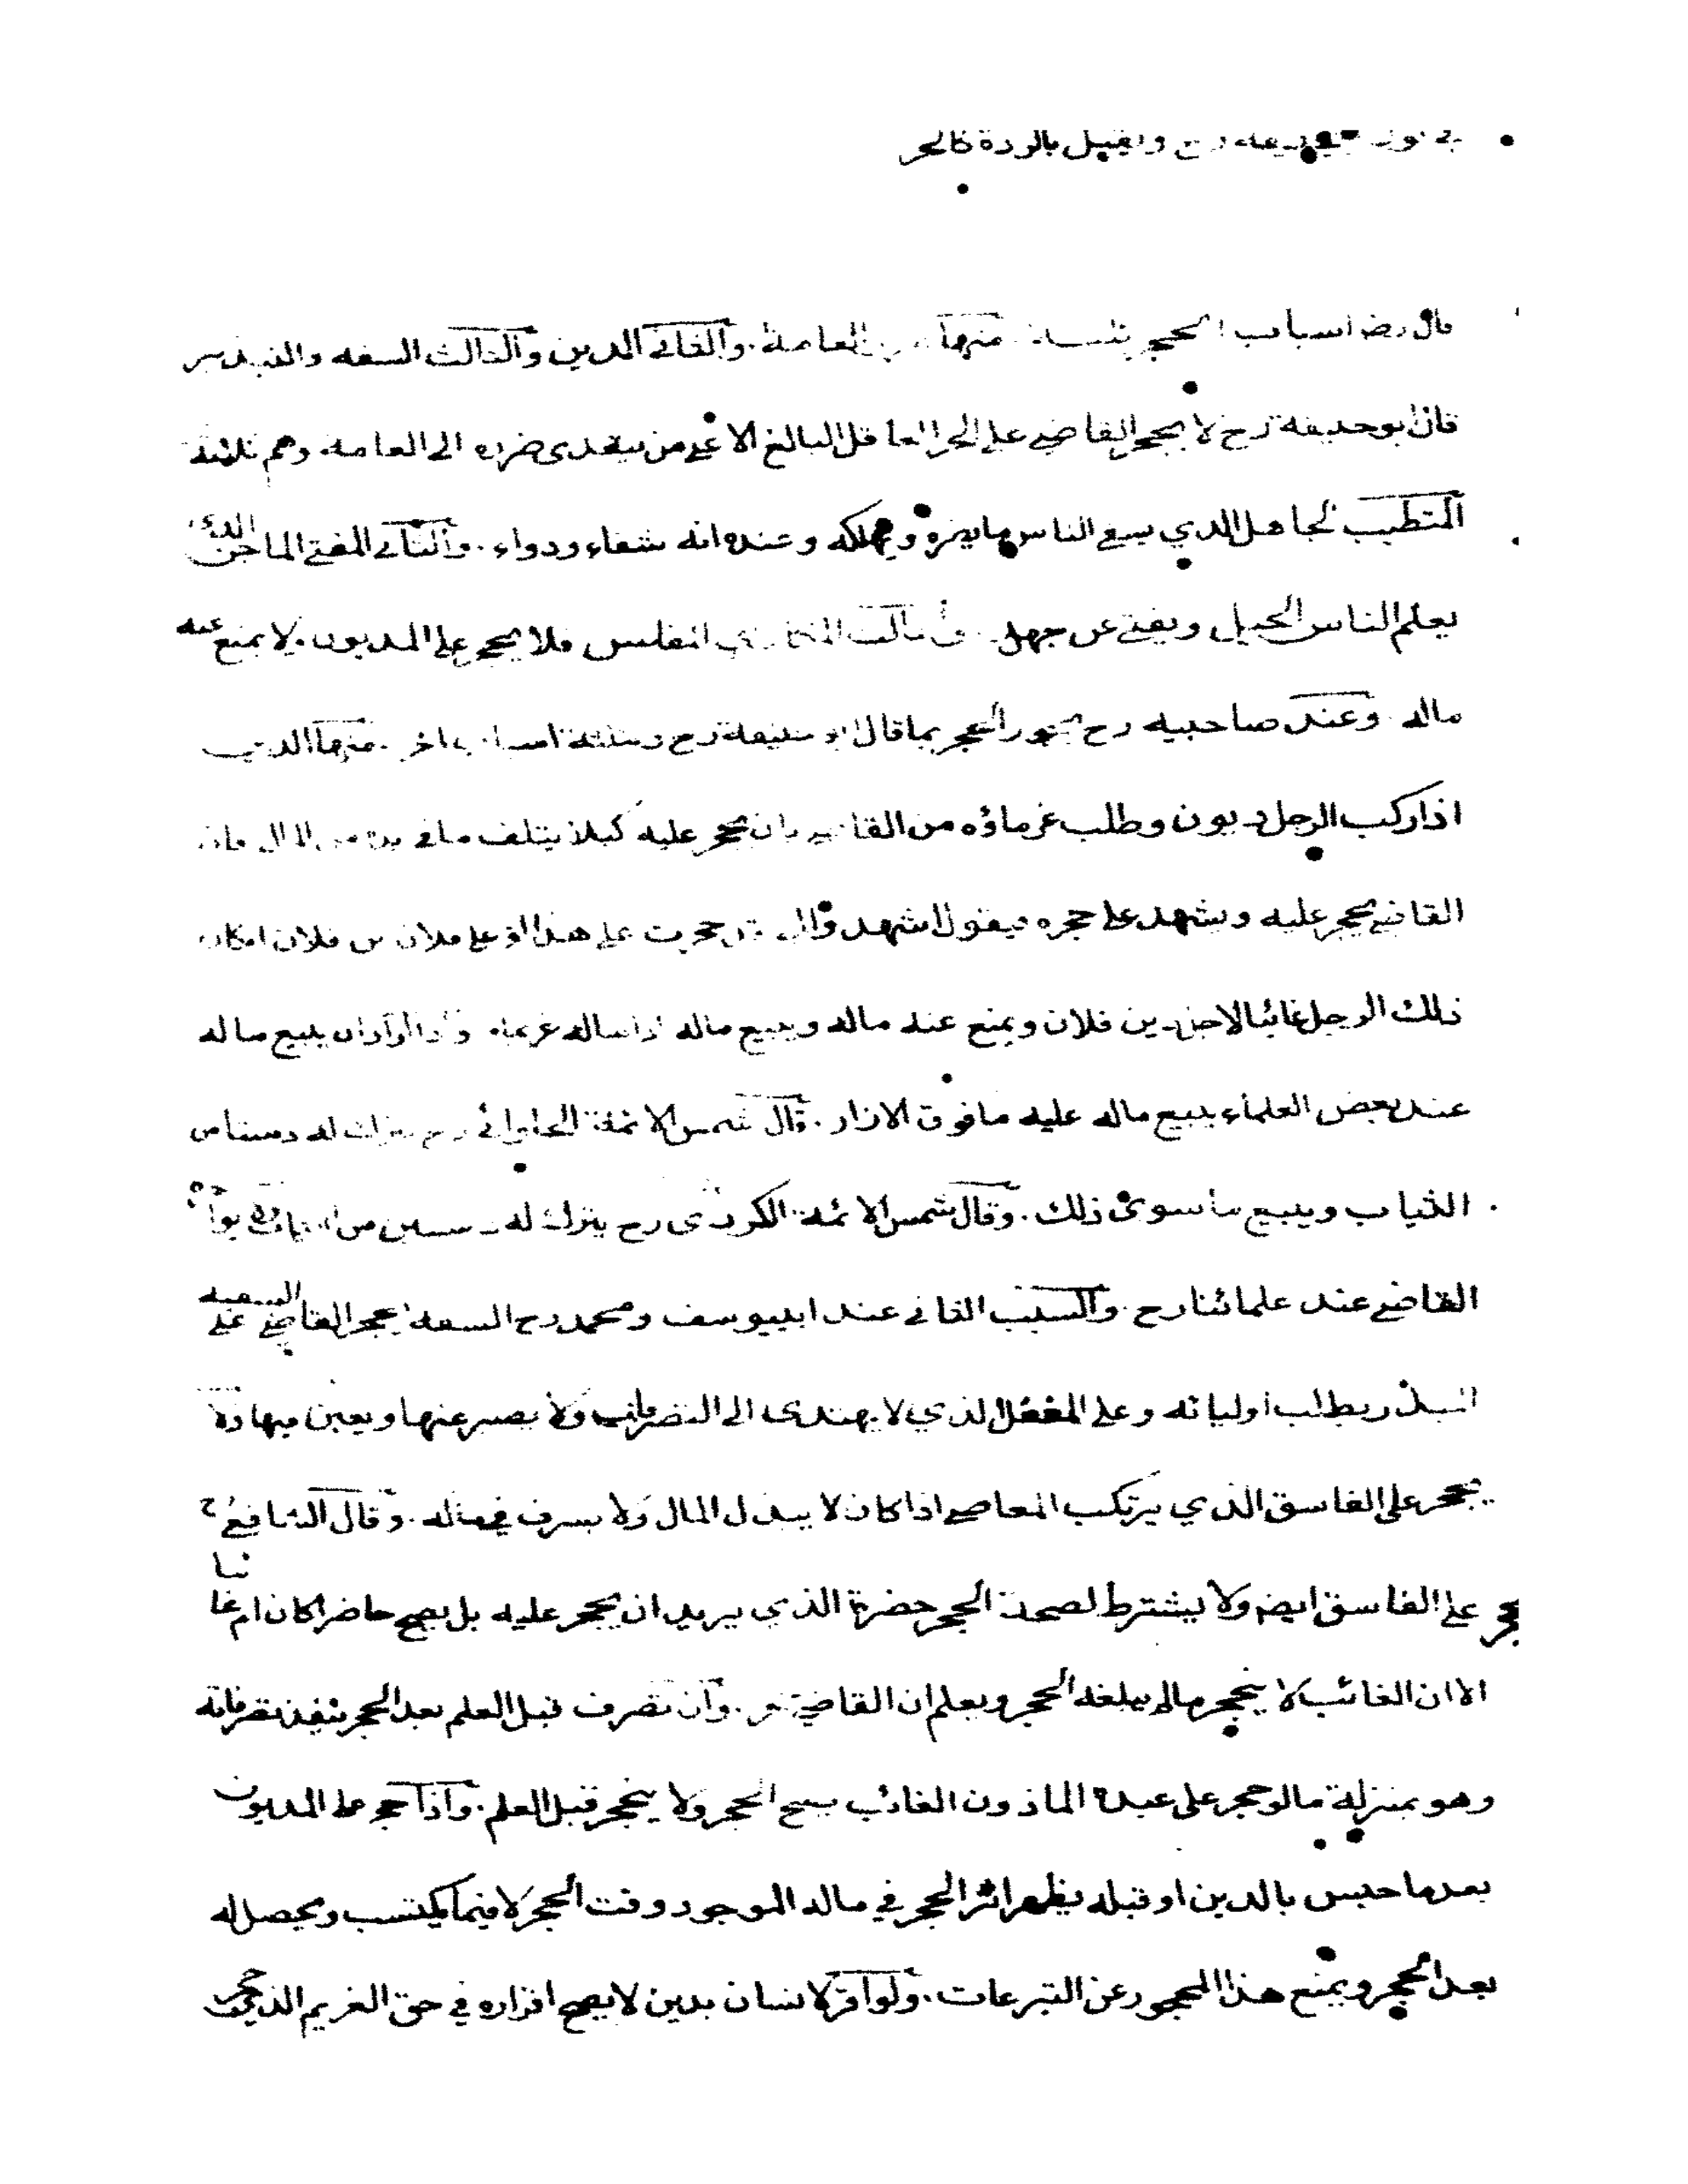 ويقتل بالردة كالحر
قال رضـ اسباب الحجر ثلثة منها العامة . والثاني الدين والثالث السفه والتبذير
قال ابو حنيفة رح لا يحجر القاضي على الحر العاقل البالغ الا على من يتعدى ضرره الى العامة وهم ثلثة
المتطبب الجاهل الذي يسقي الناس ما يضره ويهلكه وعنده انه شفاء ودواء . والثاني المفتي الماجن الذي
يعلم الناس الحيل ويفتي عن جهل والثالث المكاري المفلس فلا يحجر على المديون ولا يمنع عنه
ماله . وعند صاحبيه رح يجوز الحجر بما قال ابو حنيفة رح وبثلثة اسباب اخر . منها الدين
اذا ركب الرجل ديون وطلب غرماؤه من القاضي بان يحجر عليه كيلا يتلف ما في يده من المال فان
القاضي يحجر عليه ويشهد على حجره فيقول اشهدوا اني قد حجرت على هذا او على فلان بن فلان ان كان
ذلك الرجل غائبا لاجل دين فلان ويمنع عنه ماله ويبيع ماله اذا ساله غرماءه واذا اراد ان يبيع ماله
عند بعض العلماء يبيع ماله عليه ما فوق الازار . قال شمس الائمة الحلوائي رح يترك له دستا من
الثياب ويبيع ما سوى ذلك . وقال شمس الائمة الكردري رح يترك له دستين من الثياب
القاضي عند علمائنا رح . والسبب الثاني عند ابي يوسف ومحمد رح السفه يحجر القاضي على السفيه
المبذر بطلب اوليائه وعلى المغفل الذي لا يهتدي الى التصرفات ولا يصبر عنها ويغبن فيها ولا
يحجر على الفاسق الذي يرتكب المعاصي اذا كان لا يبذل المال ولا يسرف في ماله . وقال الشافعي رح
يحجر على الفاسق ايضـ ولا يشترط لصحة الحجر حضرة الذي يريد ان يحجر عليه بل يصح حاضرا كان ام غائبا
الا ان الغائب لا ينحجر مالم يبلغه الحجر ويعلم ان القاضي حجر . وان تصرف قبل العلم بعد الحجر تنفيذ تصرفاته
وهو بمنزلة مالو حجر على عبده الماذون الغائب يصح الحجر ولا ينحجر قبل العلم . واذا حجر على المديون
بعد ما حبس بالدين او قبله يظهر اثر الحجر في ماله الموجود وقت الحجر لا فيما يكتسب ويحصل له
بعد الحجر ويمنع هذا المحجور عن التبرعات . ولو اقر لانسان بدين لا يصح اقراره في حق الغريم الذي حجر